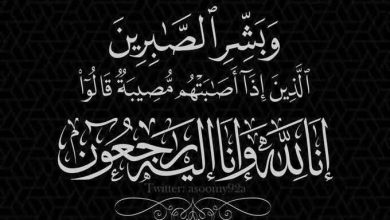 وَبَشِّرِ ٱلصَّابِرِينَ
ٱلَّذِينَ إِذَآ أَصَـٰبَتْهُم مُّصِيبَةٌ قَالُوٓا۟
إِنَّا لِلَّهِ وَإِنَّا إِلَيْهِ رَاجِعُونَ
Twitter: asoomy92a